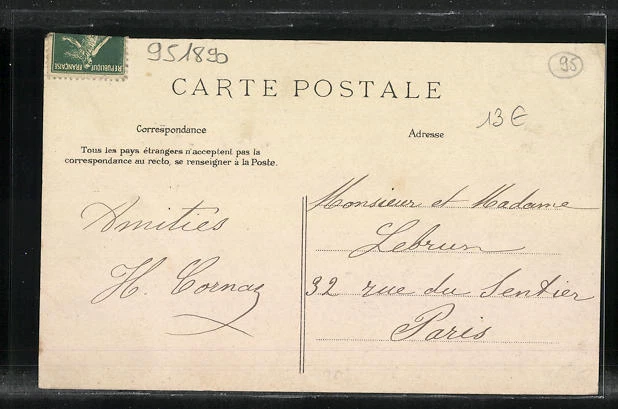 RÉPUBLIQUE FRANÇAISE
951890
95
CARTE POSTALE
13€
Correspondance
Adresse
Tous les pays étrangers n'acceptent pas la
correspondance au recto, se renseigner à la Poste.
Amitiés
H. Cornaz
Monsieur et Madame
Lebrun
32 rue du Sentier
Paris